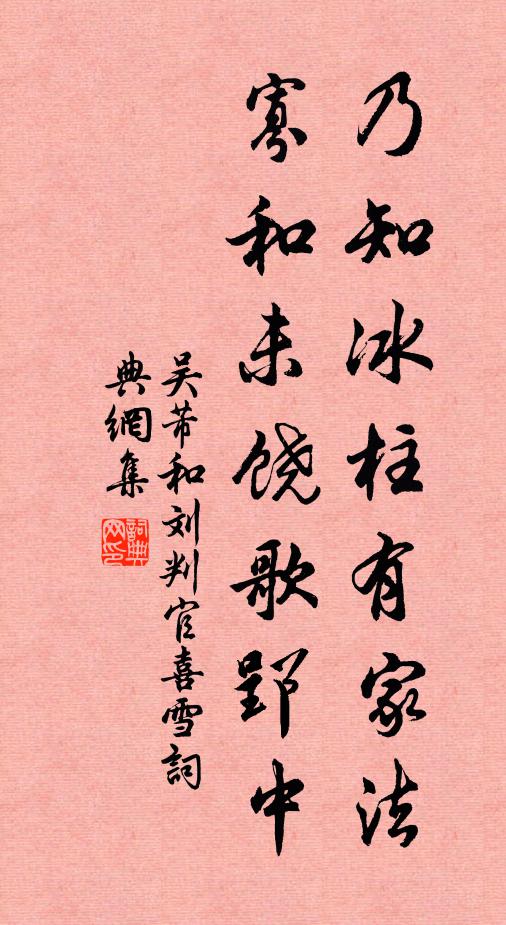 乃知冰柱有家法
寡和未饶歌郢中
吴芾和刘判官喜雪詞
典網集
詞典网印